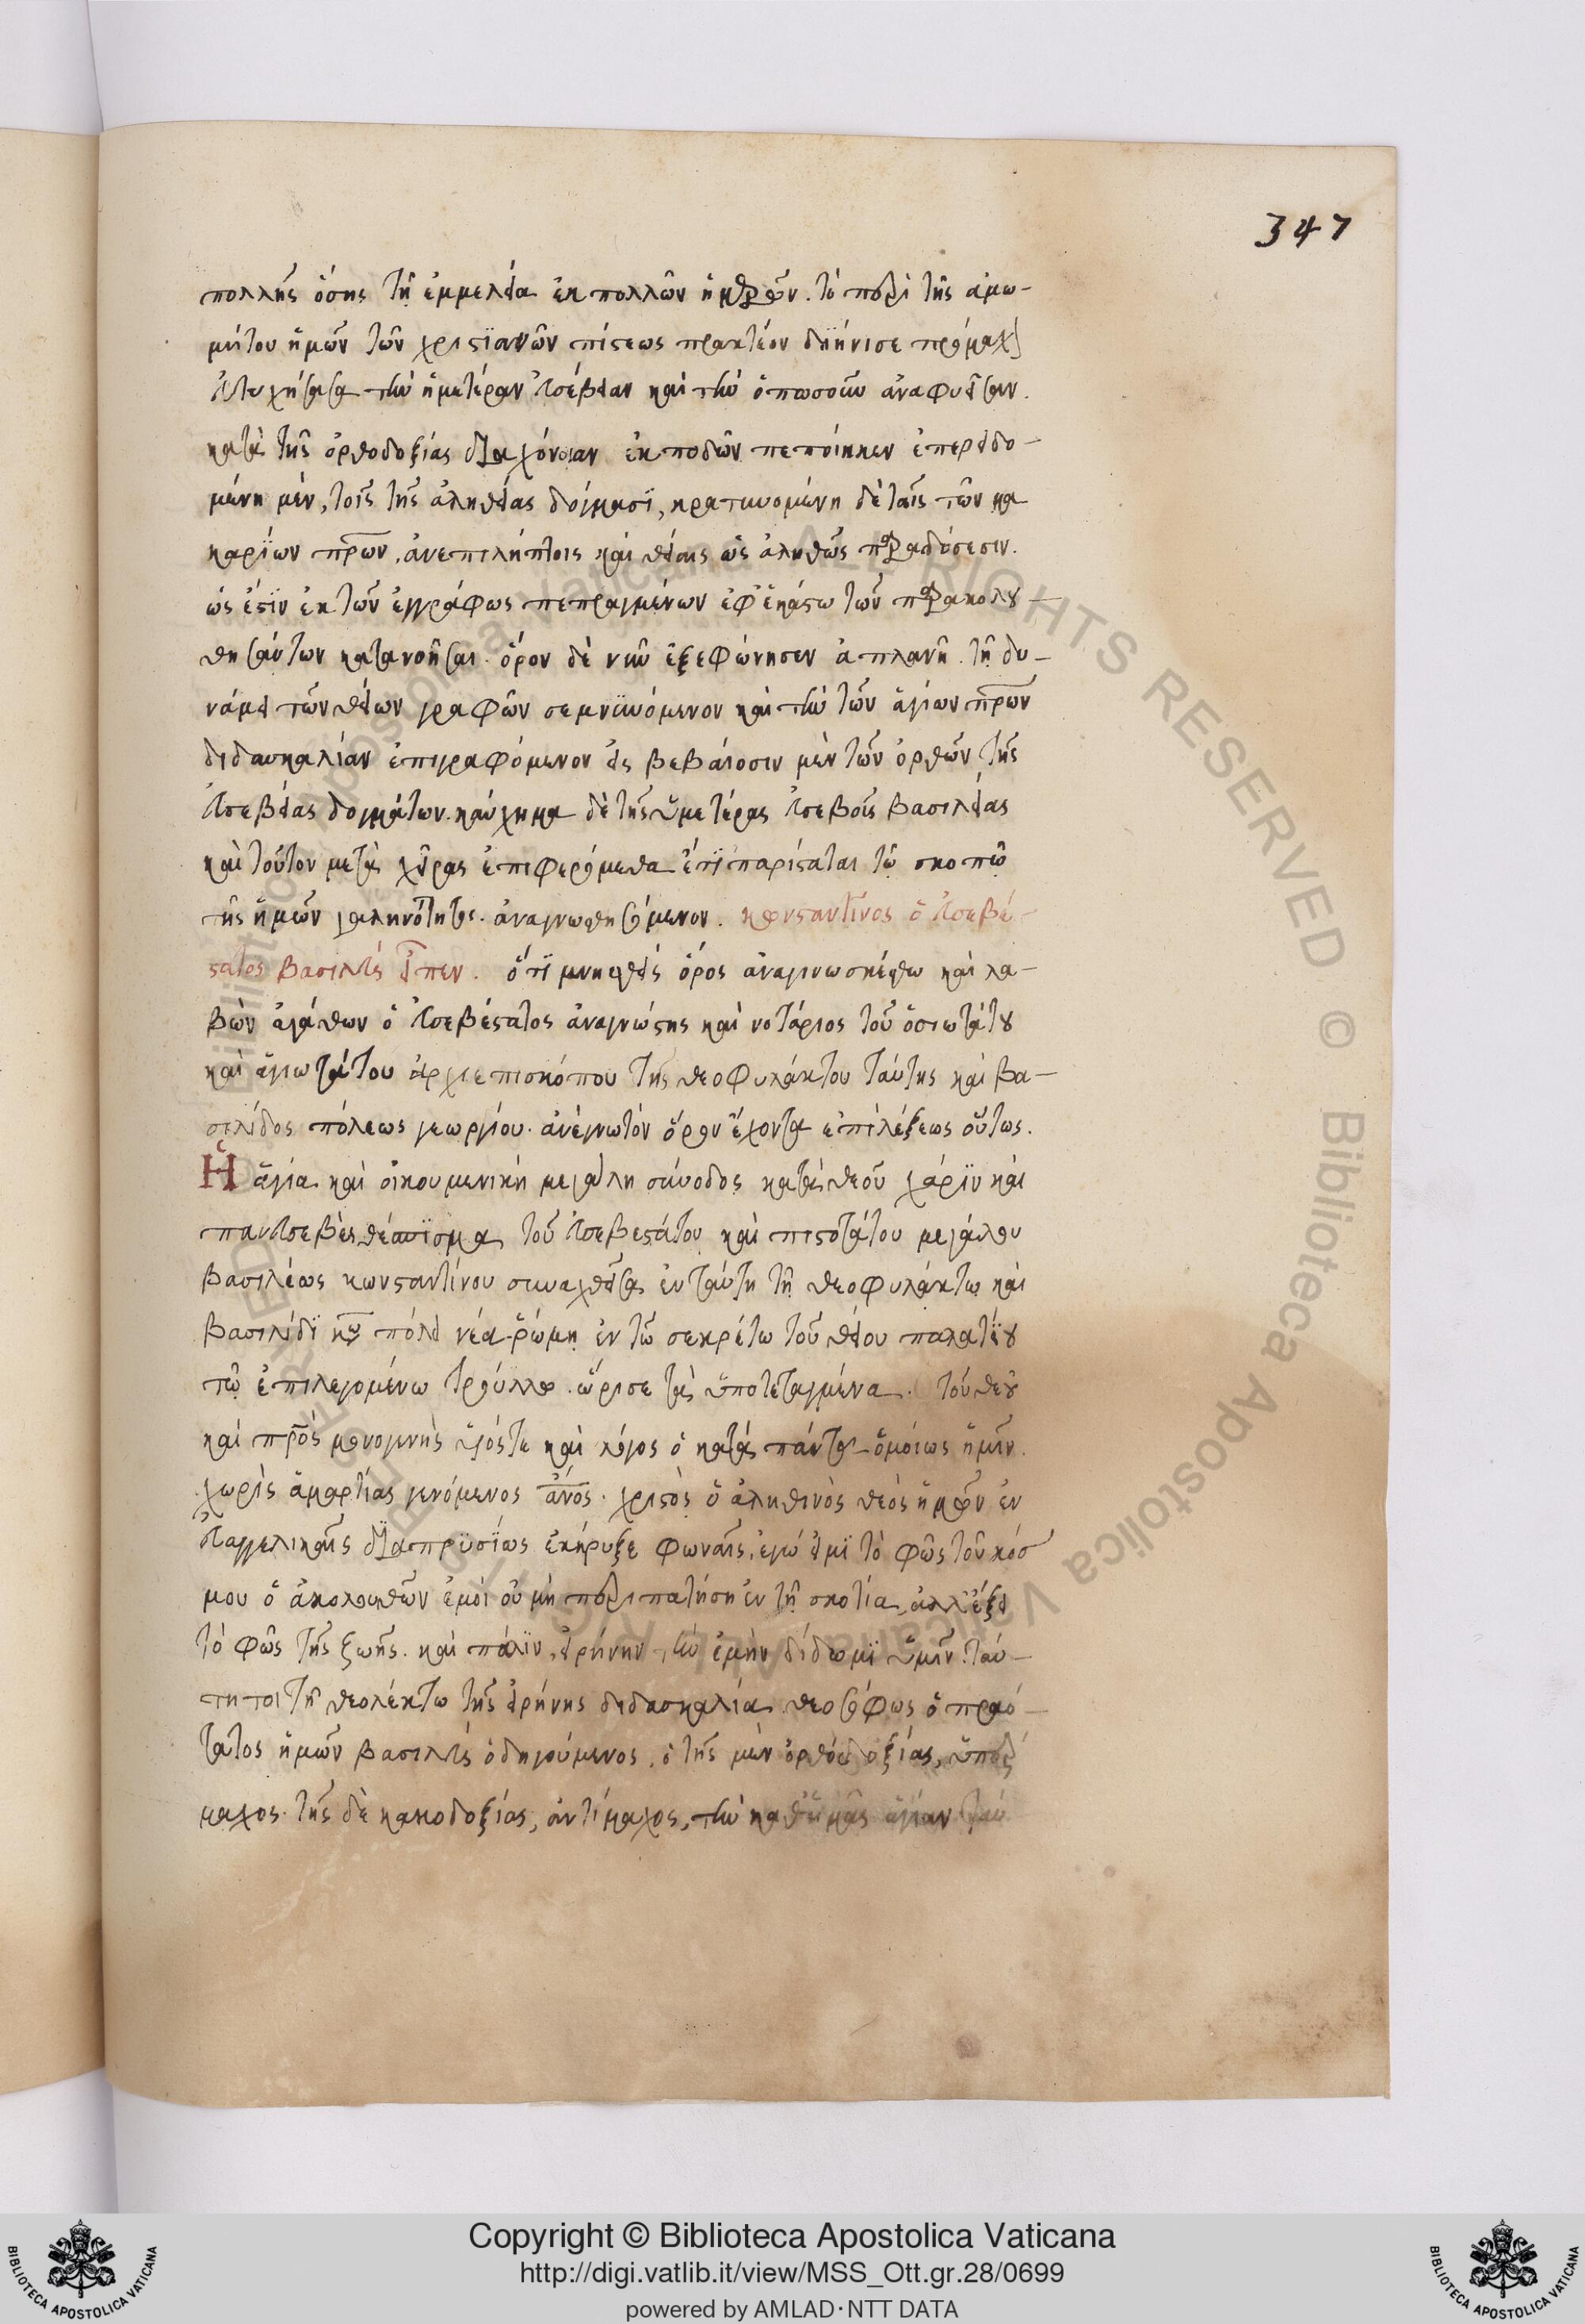 347
πολλῆς οὔσης τῆ ἐμμελεία ἐκ πολλῶν ἡμερῶν. τὸ περὶ τῆς ἀμω-
μήτου ἡμῶν τῶν χριστϊανῶν πίστεως πρακτέον διήνισε
εὐτυχήσασα τὴν ἡμετέραν εὐσέβειαν καὶ τὴν ὁπωσοῦν ἀναφυεῖσαν.
κατὰ τῆς ὀρθοδοξίας διαχόνοιαν ἐκ ποδῶν πεποίηκεν ἐπερειδο-
μένη μὲν, τοῖς τῆς ἀληθείας δόγμασϊ, κρατυνομένη δὲ ταῖς τῶν μα
καρίων πρων. ἀνεπιλήπτοις καὶ θείαις ὡς ἀληθῶς παραδόσεσιν.
ὡς ἔστϊν ἐκ τῶν ἐγγράφως πεπραγμένων ἐφ' ἑκάστω τῶν παρακολου-
θησάντων κατανοῆσαι. ὅρον δὲ νῦν ἐξεφώνησεν ἀπλανῆ. τῆ δυ-
νάμει τῶν θείων γραφῶν σεμνϋνόμενον καὶ τὴν τῶν ἁγίων πρων
διδασκαλίαν ἐπιγραφόμενον εἰς βεβαίοσιν μὲν τῶν ὀρθῶν τῆς
εὐσεβείας δογμάτων. καύχημα δὲ τῆς ὑμετέρας εὐσεβοῦς βασιλείας
καὶ τοῦτον μετὰ χεῖρας ἐπιφερόμεθα ἔτϊ παρίσταται τῶ σκοπῶ
τῆς ἡμῶν γαληνότητος. ἀναγνωσθησόμενον. κωνσταντῖνος ὁ εὐσεβέ-
στατος βασιλεὺς εἶπεν. ὅτϊ μνησθεὶς ὅρος ἀναγινωσκέσθω καὶ λα-
βὼν ἀγάθων ὁ εὐσεβέστατος ἀναγνώστης καὶ νοτάριος τοῦ ὁσιωτάτου
καὶ ἁγιωτάτου ἀρχιεπισκόπου τῆς θεοφυλάκτου ταύτης καὶ βα-
σιλίδος πόλεως γεωργίου. ἀνέγνω τὸν ὅρον ἔχοντα ἐπὶ λέξεως οὕτως.
Ἡ ἁγία καὶ οἰκουμενικὴ μεγάλη σύνοδος κατὰ θεοῦ χάρϊν καὶ
πανευσεβὲς θέσπϊσμα τοῦ εὐσεβεστάτου καὶ πιστοτάτου μεγάλου
βασιλέως κωνσταντίνου συναχθεῖσα ἐν ταύτη τῆ θεοφυλάκτω καὶ
βασιλίδϊ πόλει νέα ῥώμη ἐν τῶ σεκρέτω τοῦ θείου παλατίου
τῶ ἐπιλεγομένω τρούλλω. ὥρισε τὰ ὑποτεταγμένα. τοῦ θεοῦ
καὶ πρὸς μονογενὴς υἱός τε καὶ λόγος ὁ κατὰ πάντα ὁμοίως ἡμῖν.
χωρὶς ἁμαρτίας γενόμενος ἄνος. χριστὸς ὁ ἀληθινὸς θεὸς ἡμῶν ἐν
εὐαγγελικαῖς διαπρϋσίως ἐκήρυξε φωναῖς. ἐγώ εἰμϊ τὸ φῶς τοῦ κόσ
μου ὁ ἀκολουθῶν ἐμοὶ οὐ μὴ περιπατήση ἐν τῆ σκοτία, ἀλλ' ἕξει
τὸ φῶς τῆς ζωῆς. καὶ πάλϊν, εἰρήνην τὴν ἐμὴν δίδωμϊ ὑμῖν. ταύ-
τη τοι τῆ θεολέκτω τῆς εἰρήνης διδασκαλία θεοσόφως ὁ πραό-
τατος ἡμῶν βασιλεὺς ὁδηγούμενος. ὁ τῆς μὲν ὀρθοδοξίας, ὑπέρ
μαχος. τῆς δὲ κακοδοξίας, ἀντίμαχος, τὴν καθ' ἡμᾶς ἁγίαν ταύ
Copyright © Biblioteca Apostolica Vaticana
http://digi.vatlib.it/view/MSS_Ott.gr.28/0699
powered by AMLAD·NTT DATA
BIBLIOTECA APOSTOLICA VATICANA
BIBLIOTECA APOSTOLICA VATICANA